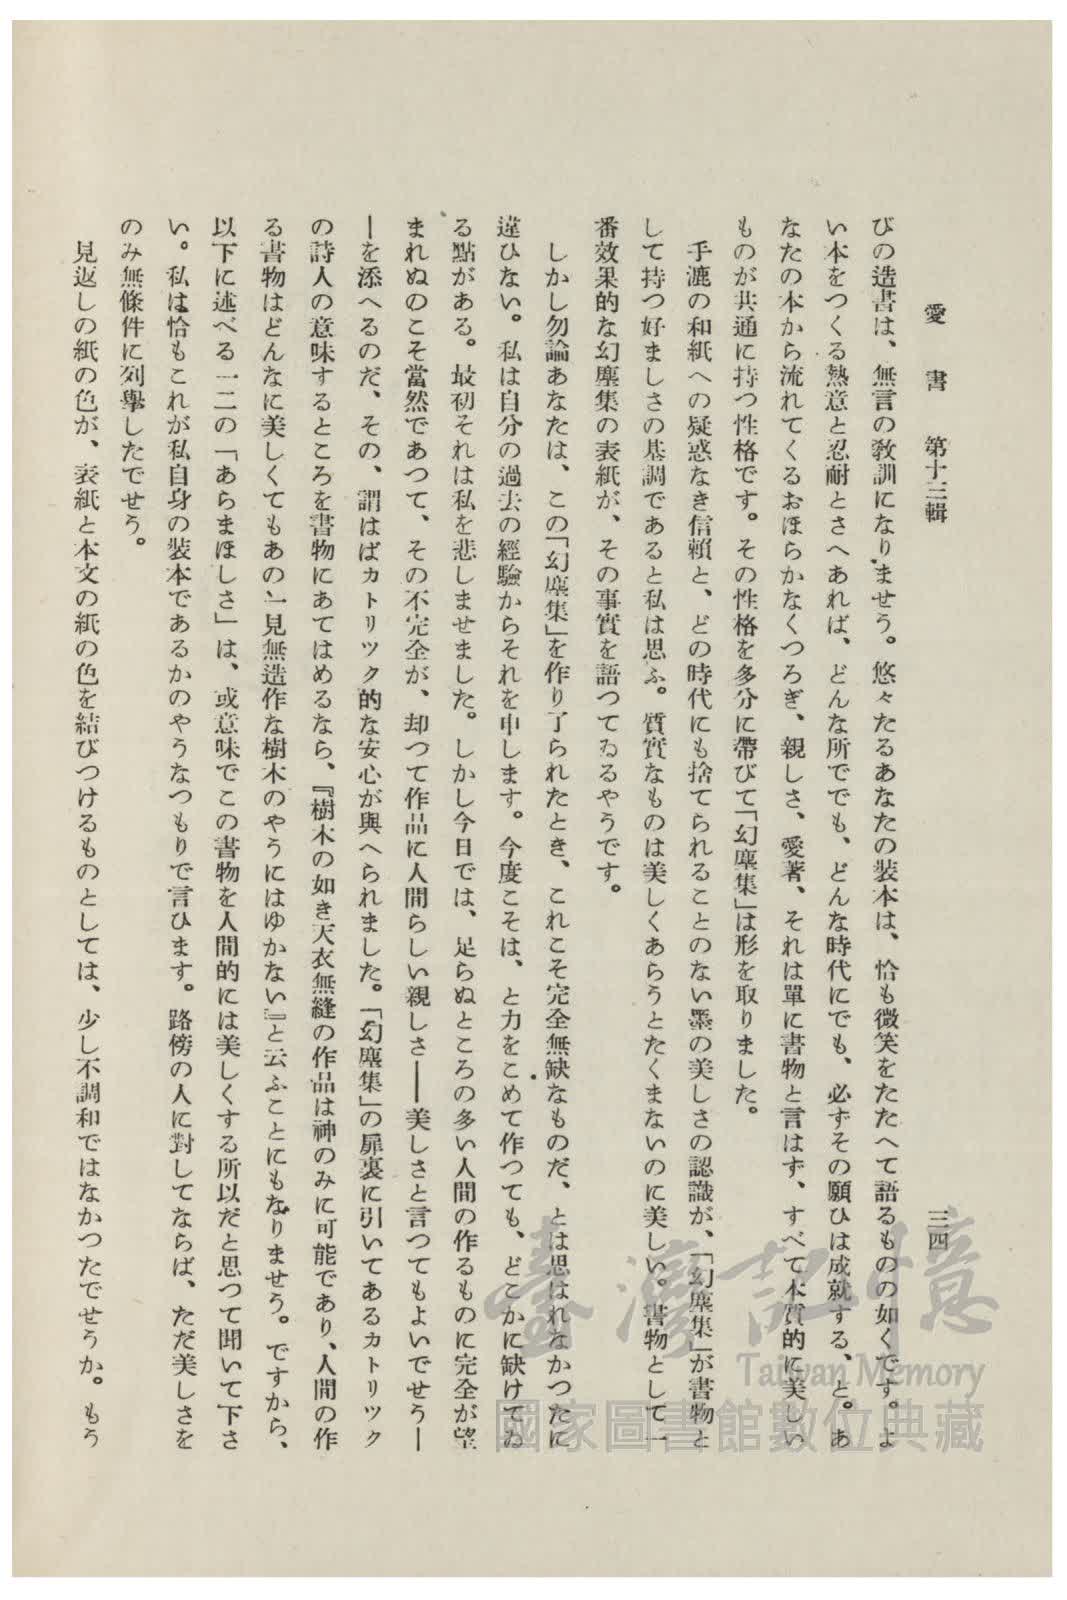 愛書 第十三輯
三四
びの造書は、無言の敎訓になりませう。悠々たるあなたの裝本は、恰も微笑をたたへて語るものの如くです。よ
い本をつくる熱意と忍耐とさへあれば、どんな所ででも、どんな時代にでも、必ずその願ひは成就する、と。あ
なたの本から流れてくるおほらかなくつろぎ、親しさ、愛著、それは單に書物と言はず、すべて本質的に美しい
ものが共通に持つ性格です。その性格を多分に帶びて「幻塵集」は形を取りました。
手漉の和紙への疑惑なき信賴と、どの時代にも捨てられることのない墨の美しさの認識が、「幻塵集」が書物と
して持つ好ましさの基調であると私は思ふ。質實なものは美しくあらうとたくまないのに美しい。書物として一
番效果的な幻塵集の表紙が、その事實を語つてゐるやうです。
しかし勿論あなたは、この「幻塵集」を作り了られたとき、これこそ完全無缺なものだ、とは思はれなかつたに
違ひない。私は自分の過去の經驗からそれを申します。今度こそは、と力をこめて作つても、どこかに缺けてゐ
る點がある。最初それは私を悲しませました。しかし今日では、足らぬところの多い人間の作るものに完全が望
まれぬのこそ當然であつて、その不完全が、却つて作品に人間らしい親しさ――美しさと言つてもよいでせう―
―を添へるのだ、その、謂はばカトリツク的な安心が與へられました。「幻塵集」の扉裏に引いてあるカトリツク
の詩人の意味するところを書物にあてはめるなら、『樹木の如き天衣無縫の作品は神のみに可能であり、人間の作
る書物はどんなに美しくてもあの一見無造作な樹木のやうにはゆかない』と云ふことにもなりませう。ですから、
以下に述べる一二の「あらまほしさ」は、或意味でこの書物を人間的には美しくする所以だと思つて聞いて下さ
い。私は恰もこれが私自身の裝本であるかのやうなつもりで言ひます。路傍の人に對してならば、ただ美しさを
のみ無條件に列擧したでせう。
見返しの紙の色が、表紙と本文の紙の色を結びつけるものとしては、少し不調和ではなかつたでせうか。もう
臺灣記憶
Taiwan Memory
國家圖書館數位典藏